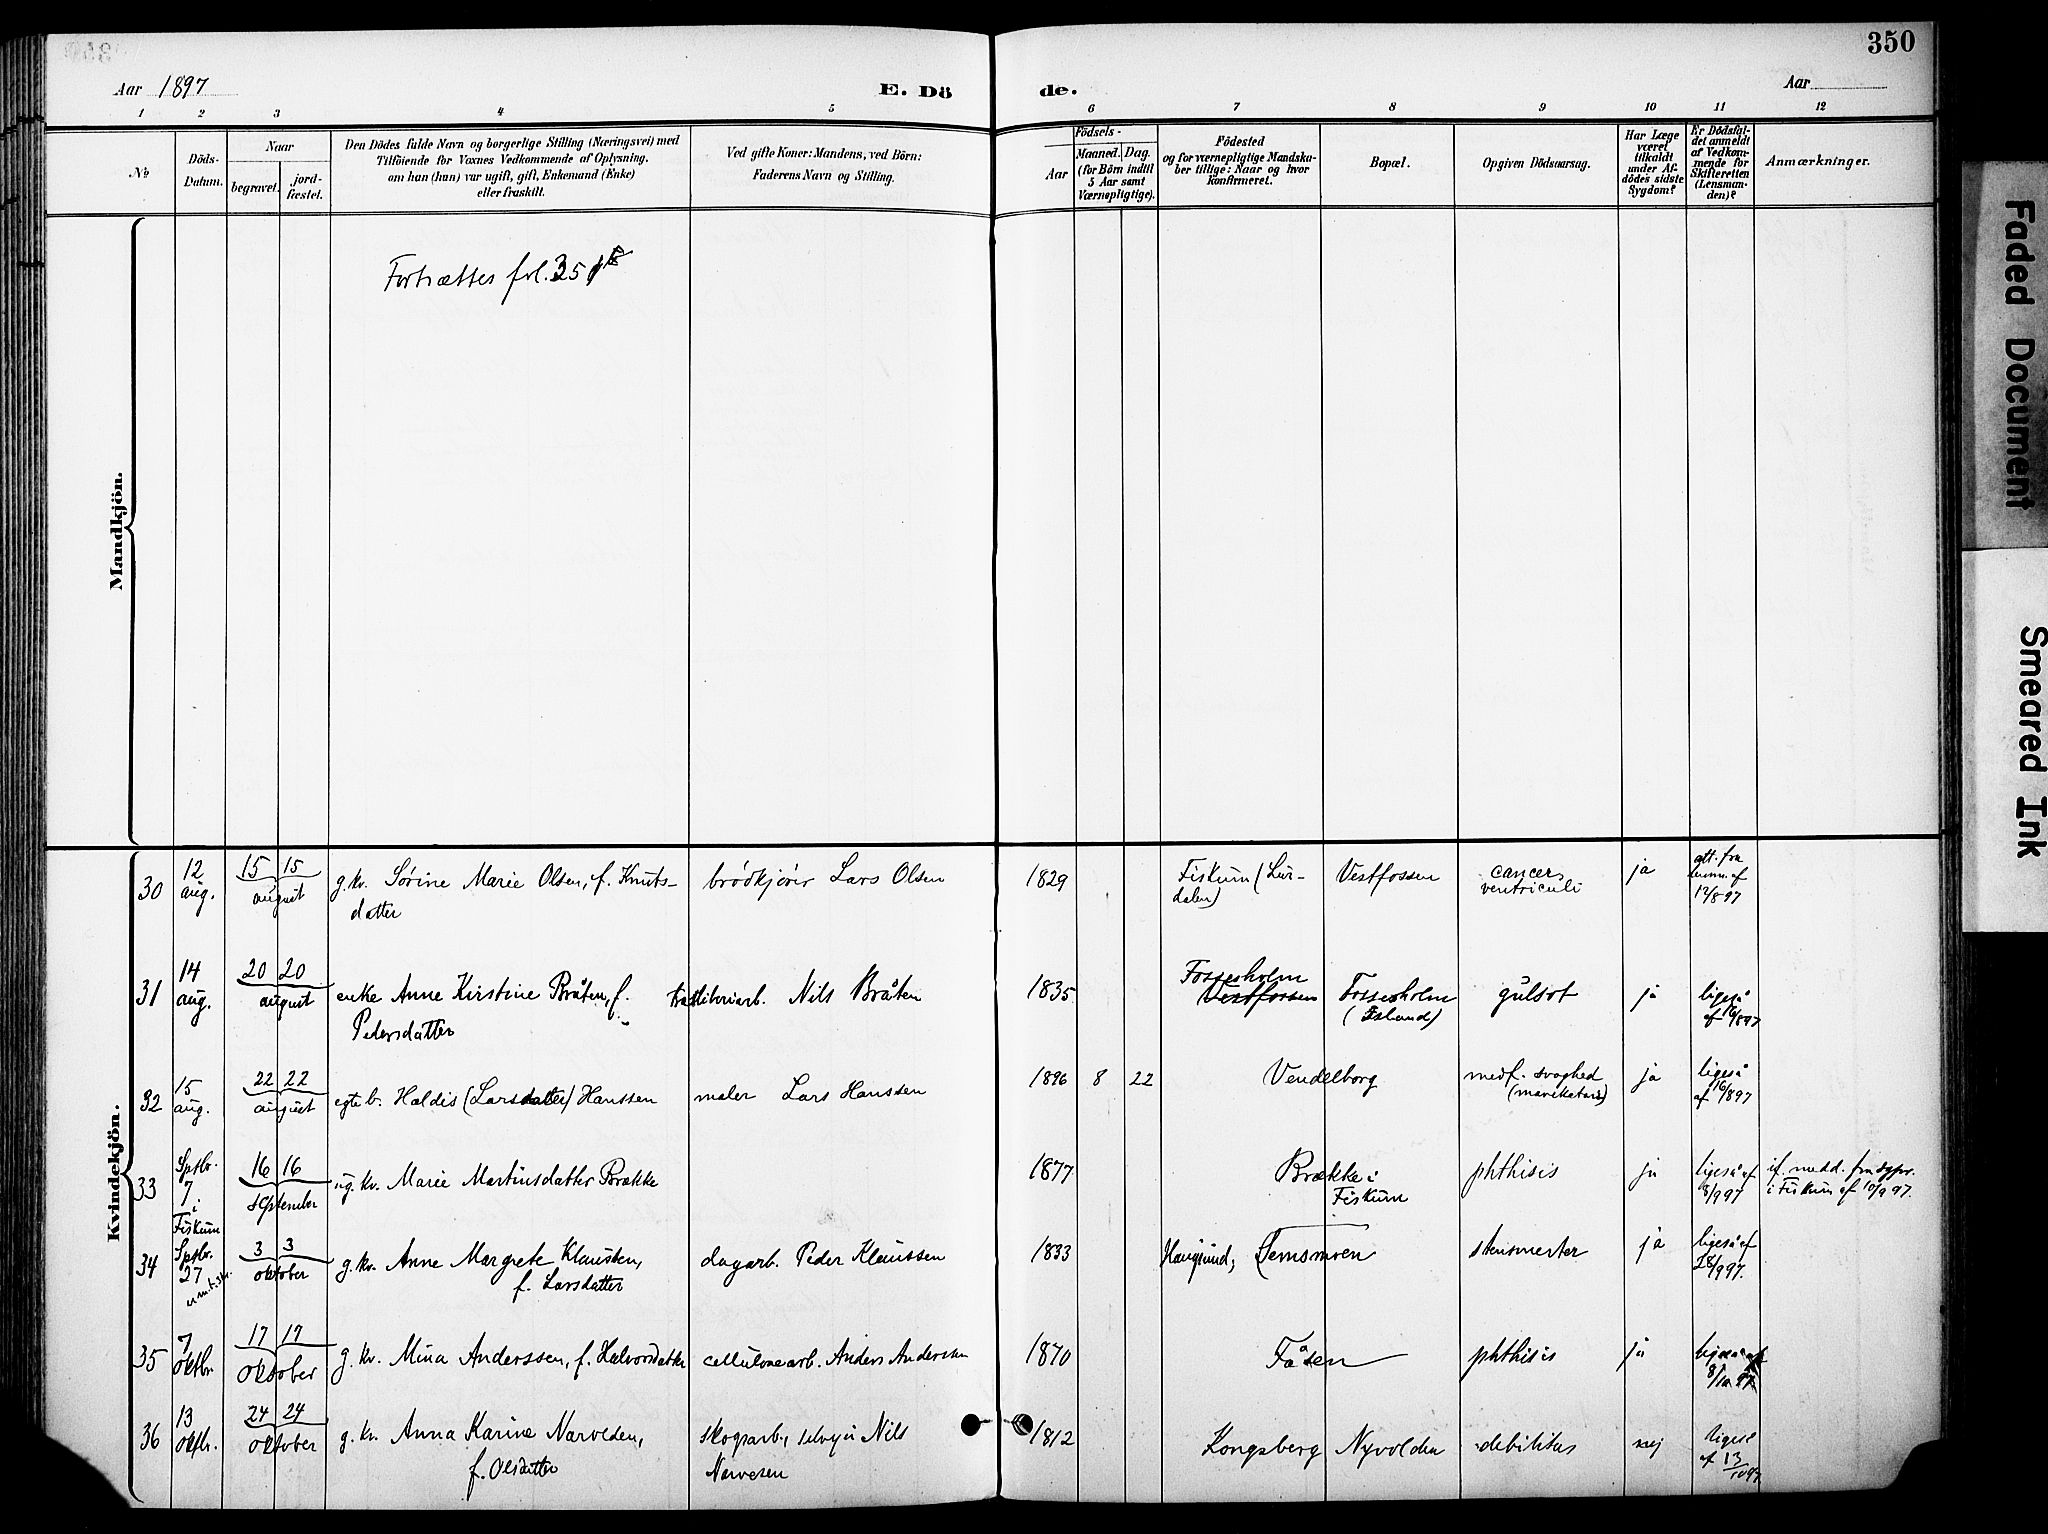 350
Aar 1897
E. Dö de.
Aar
1 2 3 4 5 6 7 8 9 10 11 12
No
Döds-
Datum.
Naar
begravet.
jord-
fæstet.
Den Dödes fulde Navn og borgerlige Stilling (Næringsvei) med
Tilföiende for Voxnes Vedkommende af Oplysning.
om han (hun) var ugift, gift, Enkemand (Enke)
eller fraskilt.
Ved gifte Koner: Mandens, ved Börn:
Faderens Navn og Stilling.
Födsels-
Aar
Maaned. Dag.
(for Börn indtil
5 Aar samt
Værnepligtige).
Födested
og for værnepligtige Mandska-
ber tillige: Naar og hvor
konfirmeret.
Bopæl.
Opgiven Dödsaarsag.
Har Læge
været
tilkaldt
under Af-
dödes sidste
Sygdom?
Er Dödsfal-
det anmeldt
af Vedkom-
mende for
Skifteretten
(Lensman-
den)?
Anmærkninger.
Mandkjön.
Fortsættes fol. 351
Kvindekjön.
30 12 aug. 15 15 august g. kv. Sørine Marie Olsen, f. Knuts-
datter
brødkjører Lars Olsen 1829 Fiskum (Lur-
dalen)
Vestfossen cancer
ventriculi
ja att. fra
lensm. af
12/8 97
31 14 aug. 20 20 august enke Anne Kirstine Bråten, f.
Pedersdatter
Nils Bråten 1835 Fossesholm
Vestfossen
Fossesholm
gulsot ja ligeså
af 16/8 97
32 15 aug. 22 22 august egte b. Haldis (Larsdatter) Hanssen maler Lars Hanssen 1896 8 22 Vendelborg medf. svaghed
ja ligeså
af 16/8 97
33 Sptbr. 7 i Fiskum 16 16 september ug. kv. Marie Martinsdatter Brække 1877 Brække i
Fiskum
phthisis ja ligeså af
8/9 97
if. medd. fra sgpr.
i Fiskum af 10/9 97.
34 Sptbr. 27 3 3 oktober g. kv. Anne Margrete Klaussen,
f. Larsdatter
dagarb. Peder Klaussen 1833 Haugsund; Temsmoen stensmerter ja ligeså af
28/9 97.
35 7 oktbr 17 17 oktober g. kv. Mina Anderssen, f. Halvorsdatter cellulosearb. Anders Anderssen 1870 Fåsen phthisis ja ligeså af
8/10 97
36 13 oktbr. 24 24 oktober g. kv. Anna Karine Narvesen,
f. Olsdatter
skogsarb., selvejer Nils
Narvesen
1812 Kongsberg Nyvolden debilitas nej ligeså
af 13/10 97
Faded Document
Smeared Ink